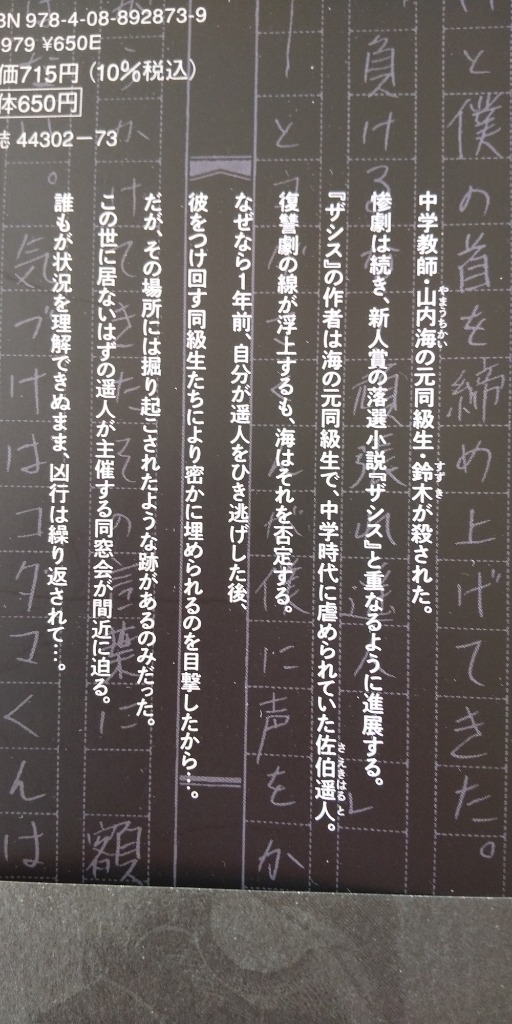 BN 978-4-08-892873-9
979 ¥650E
価715円(10%税込)
体650円
誌 44302-73
中学教師・山内海の元同級生・鈴木が殺された。
惨劇は続き、新人賞の落選小説『ザシス』と重なるように進展する。
『ザシス』の作者は海の元同級生で、中学時代に虐められていた佐伯遥人。
復讐劇の線が浮上するも、海はそれを否定する。
なぜなら1年前、自分が遥人をひき逃げした後、
彼をつけ回す同級生たちにより密かに埋められるのを目撃したから…。
だが、その場所には掘り起こされたような跡があるのみだった。
この世に居ないはずの遥人が主催する同窓会が間近に迫る。
誰もが状況を理解できぬまま、凶行は繰り返されて…。
と僕の首を締め上げてきた。